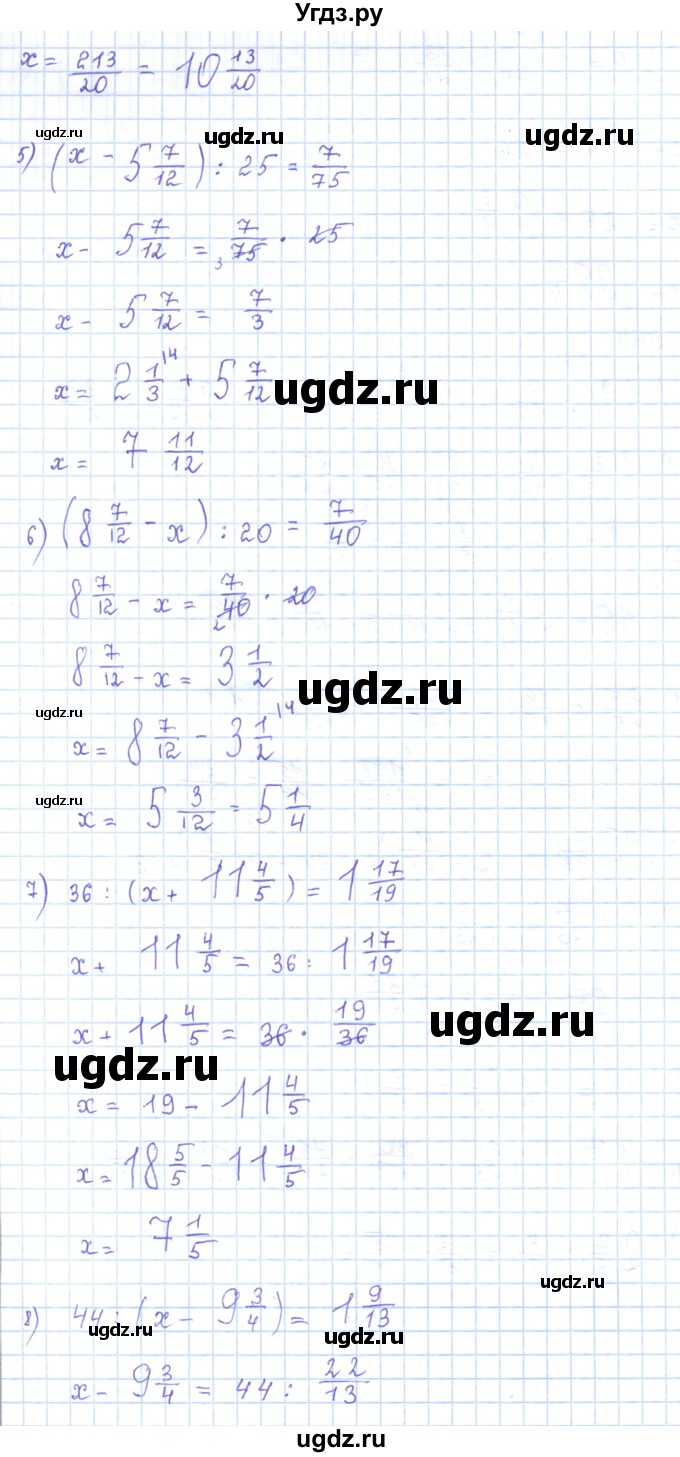 Угдз.ру
x = 213/20 = 10 13/20
ugdz.ru ugdz.ru ugdz.ru
5) (x - 5 7/12) : 25 = 7/75
x - 5 7/12 = 7/75 3 · 25
x - 5 7/12 = 7/3
x = 2 1/3 \4 + 5 7/12
ugdz.ru
x = 7 11/12
6) (8 7/12 - x) : 20 = 7/40
8 7/12 - x = 7/40 2 · 20
8 7/12 - x = 3 1/2
ugdz.ru
ugdz.ru
x = 8 7/12 - 3 1/2 \4
ugdz.ru
x = 5 3/12 = 5 1/4
7) 36 : (x + 11 4/5) = 1 17/19
x + 11 4/5 = 36 : 1 17/19
x + 11 4/5 = 36 · 19/36
ugdz.ru
ugdz.ru
x = 19 - 11 4/5
x = 18 5/5 - 11 4/5
x = 7 1/5
ugdz.ru
8) 44 : (x - 9 3/4) = 1 9/13
ugdz.ru ugdz.ru
x - 9 3/4 = 44 : 22/13
ugdz.ru